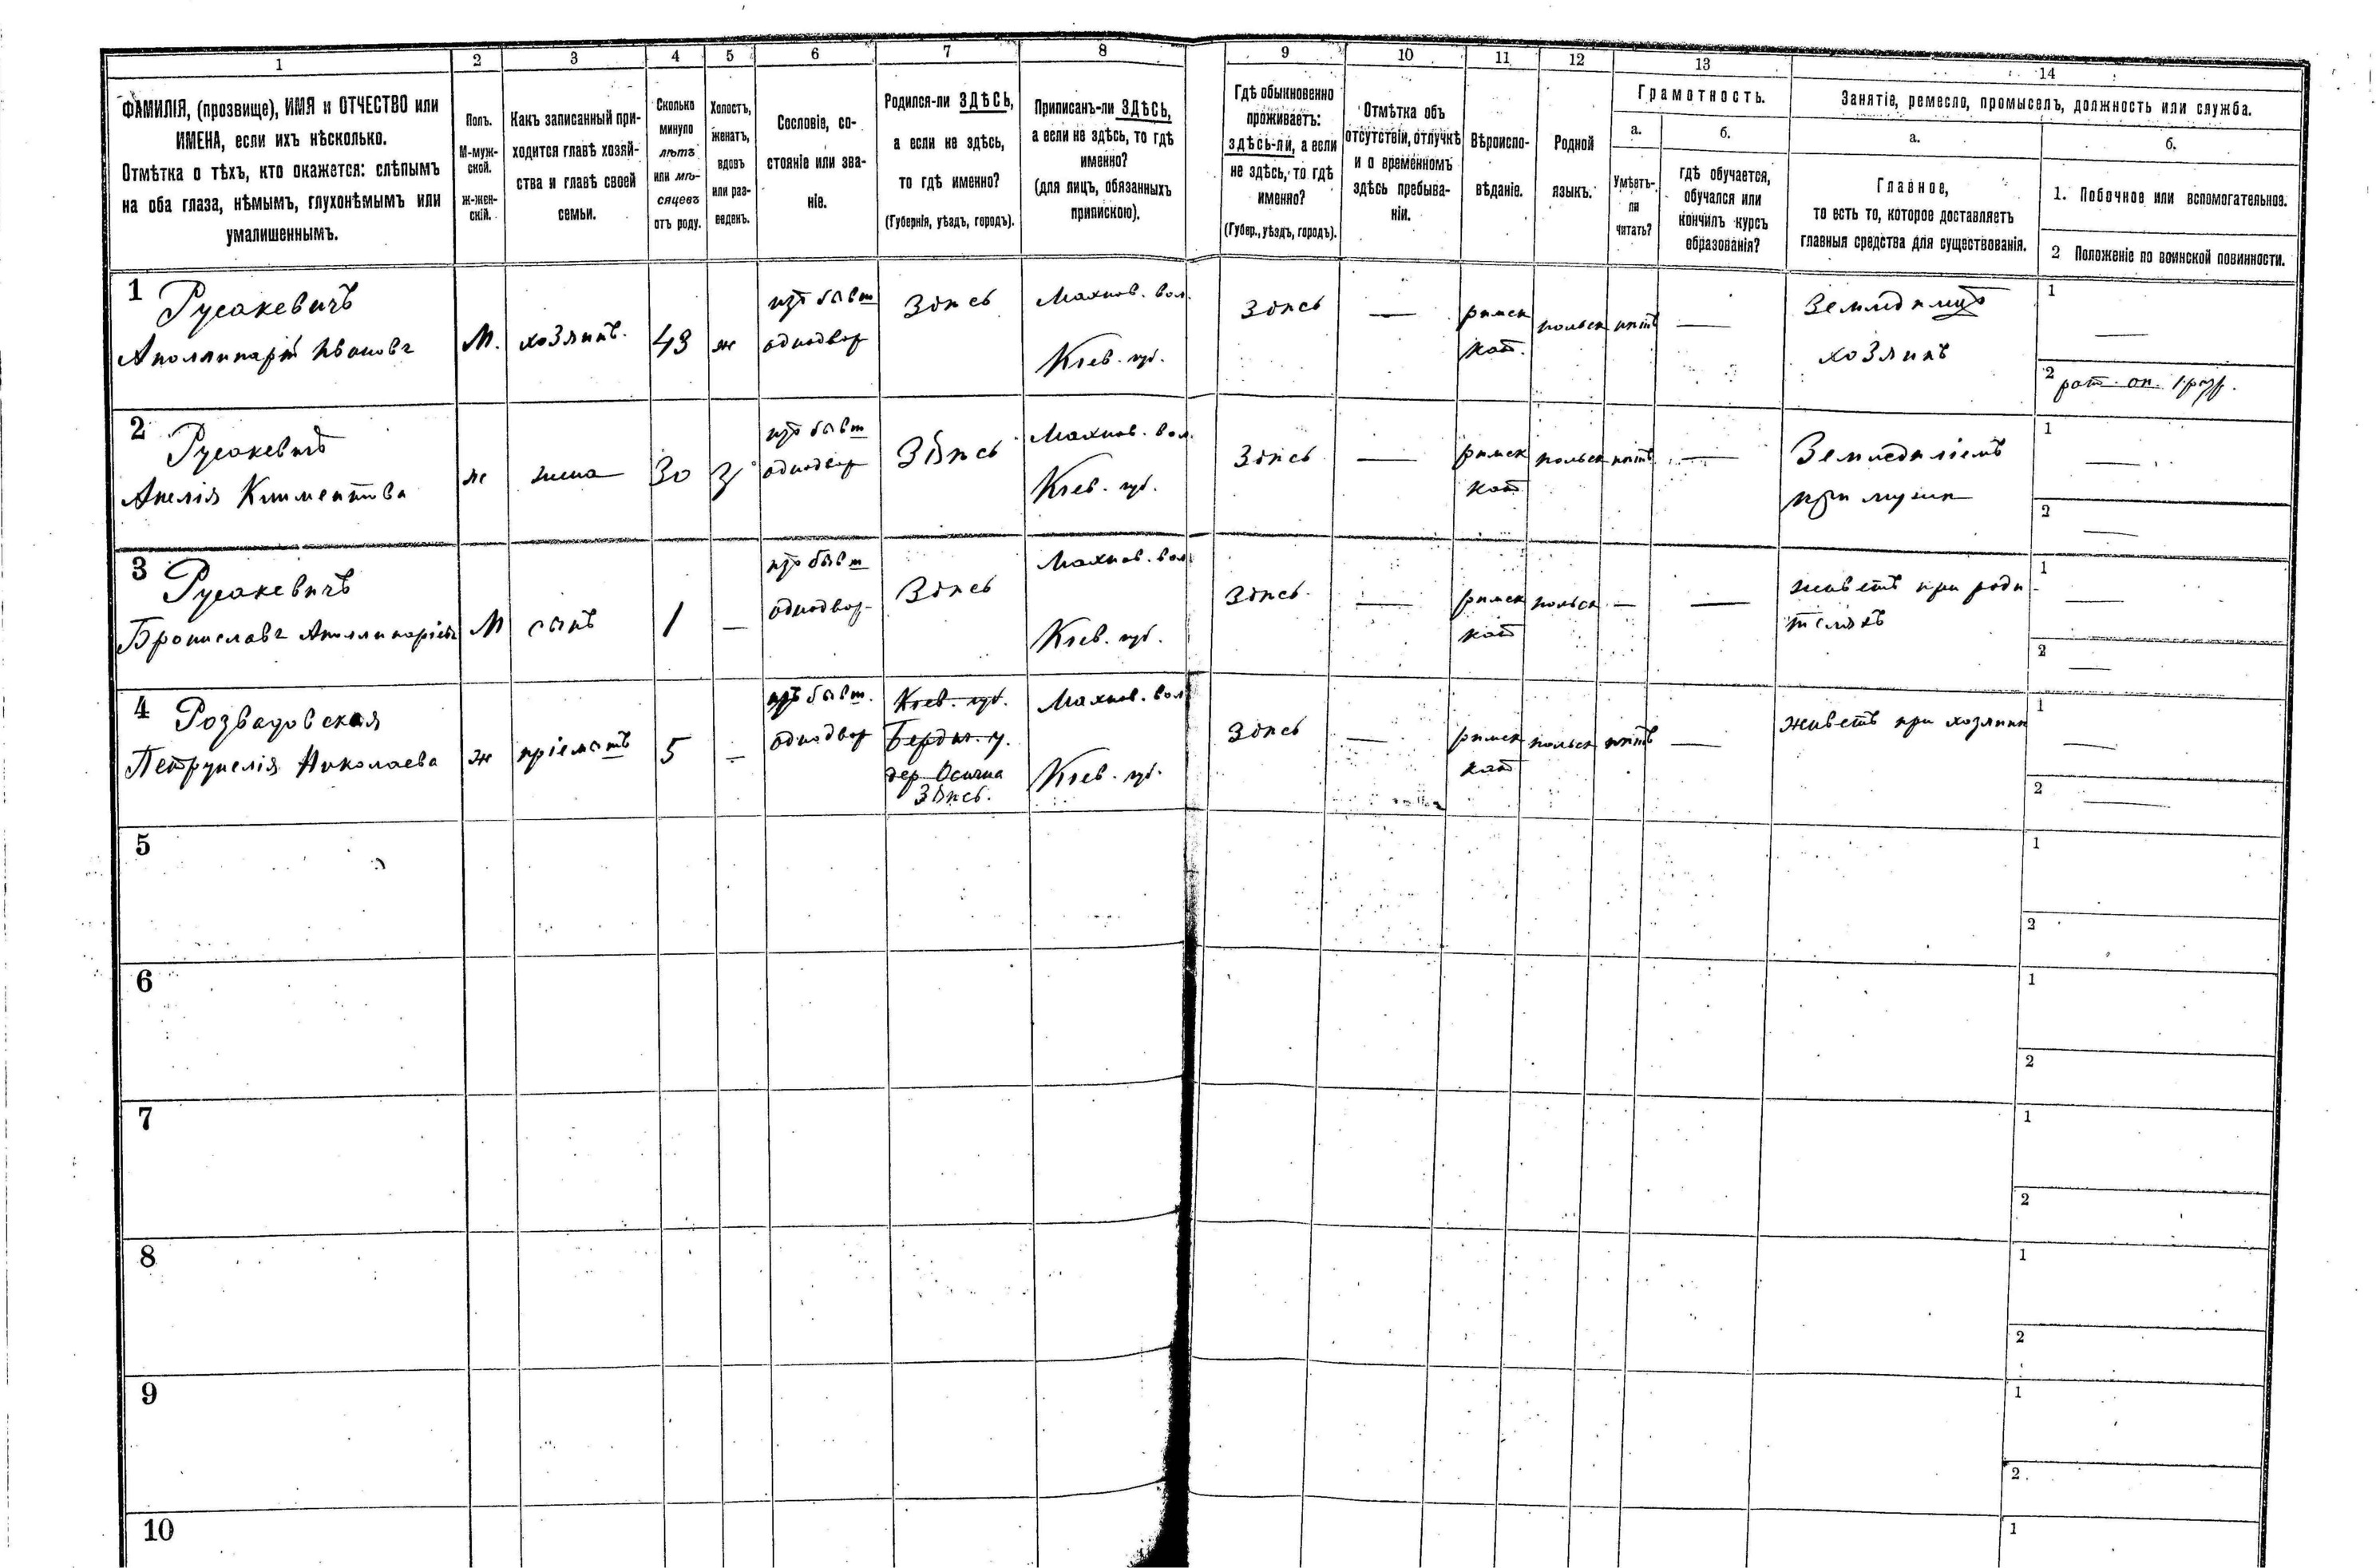 1
2
3
4
5
6
7
8
9
10
11
12
13
14
ФАМИЛІЯ, (прозвище), ИМЯ и ОТЧЕСТВО или
ИМЕНА, если ихъ нѣсколько.
Отмѣтка о тѣхъ, кто окажется: слѣпымъ
на оба глаза, нѣмымъ, глухонѣмымъ или
умалишеннымъ.
Полъ.
М-муж-
ской.
ж-жен-
скій.
Какъ записанный при-
ходится главѣ хозяй-
ства и главѣ своей
семьи.
Сколько
минуло
лѣтъ
или мѣ-
сяцевъ
отъ роду.
Холостъ,
женатъ,
вдовъ
или раз-
веденъ.
Сословіе, со-
стояніе или зва-
ніе.
Родился-ли ЗДѢСЬ,
а если не здѣсь,
то гдѣ именно?
(Губернія, уѣздъ, городъ).
Приписанъ-ли ЗДѢСЬ,
а если не здѣсь, то гдѣ
именно?
(для лицъ, обязанныхъ
припискою).
Гдѣ обыкновенно
проживаетъ:
здѣсь-ли, а если
не здѣсь, то гдѣ
именно?
(Губер., уѣздъ, городъ).
Отмѣтка объ
отсутствіи, отлучкѣ
и о временномъ
здѣсь пребыва-
ніи.
Вѣроиспо-
вѣданіе.
Родной
языкъ.
Грамотность.
а.
Умѣетъ-
ли
читать?
б.
гдѣ обучается,
обучался или
кончилъ курсъ
образованія?
Занятіе, ремесло, промыселъ, должность или служба.
а.
Главное,
то есть то, которое доставляетъ
главныя средства для существованія.
б.
1. Побочное или вспомогательное.
2 Положеніе по воинской повинности.
1 Русакевичъ
Аполлинарій Ивановъ
М.
хозяинъ.
43
ж
изъ бывш
однодвор
Здѣсь
Махнов. вол.
Кіев. губ.
Здѣсь
—
римск
кат.
польск
нѣтъ
—
хозяинъ
1
—
2
2 Русакевичъ
Анелія Климентова
ж
жена
30
З
изъ бывш
однодвор
Здѣсь
Махнов. вол.
Кіев. губ.
Здѣсь
—
римск
кат
польск
нѣтъ
—
Земледѣліемъ
при мужѣ
1
—
2
—
3 Русакевичъ
Брониславъ Аполлинаріевъ
М
сынъ
1
—
изъ бывш
однодвор.
Здѣсь
Махнов. вол.
Кіев. губ.
Здѣсь
—
римск
кат
польск
—
—
живетъ при роди
теляхъ
1
—
2
—
4 Розвадовская
Петрунелія Николаева
ж
пріемышъ
5
—
изъ бывш.
однодвор
Кіев. губ.
Бердич. у.
дер Осична
Здѣсь.
Махнов. вол
Кіев. губ.
Здѣсь
—
римск
кат
польск
нѣтъ
—
живетъ при хозяинѣ
1
—
2
—
5
1
2
6
1
2
7
1
2
8
1
2
9
1
2
10
1